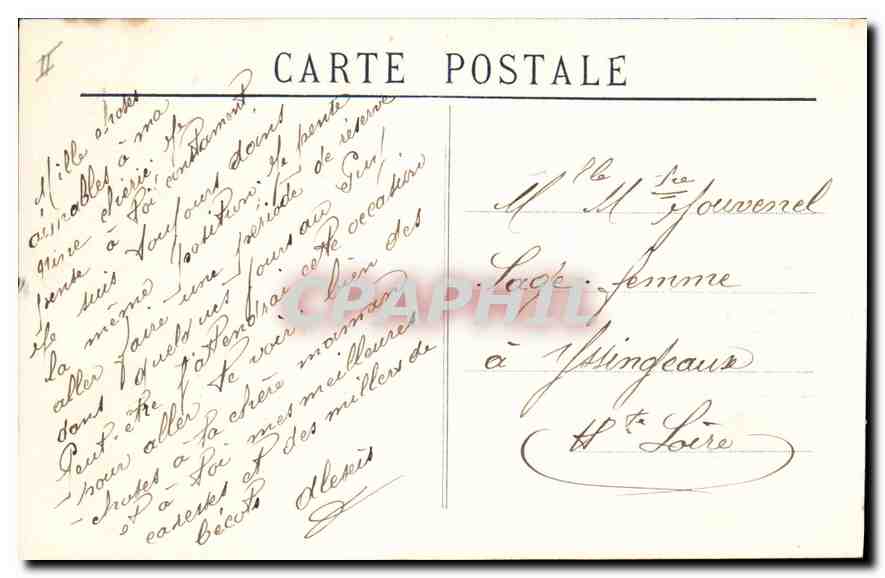 II
CARTE POSTALE
Mille choses
aimables à ma
chérie. Je
pense à toi constament.
Je suis toujours dans
la même position. Je pense
aller faire une période de réserve
dans quelques jours au Puy
Peut-être j'attendrai cette occasion
pour aller te voir. bien des
choses à ta chère maman
et à toi mes meilleures
caresses et des milliers de
bécots Alexis
Mlle Mse Jouvenel
Sage-femme
à Yssingeaux
Hte Loire
CPAPHIL